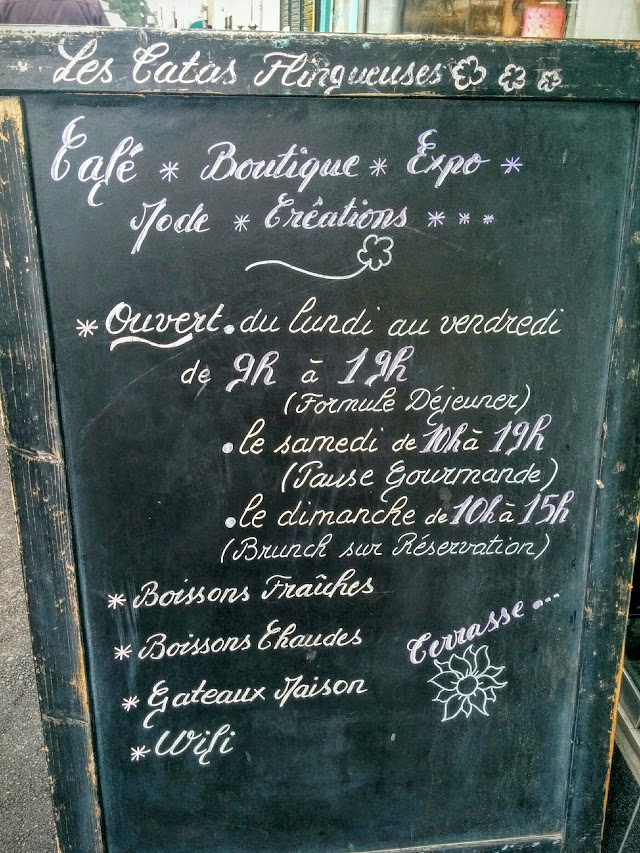 Les Catas Flingueuses
Café * Boutique * Expo *
Mode * Créations * * *
* Ouvert. du lundi au vendredi
de 9h à 19h
(Formule Déjeuner)
. le samedi de 10h à 19h
(Pause Gourmande)
. le dimanche de 10h à 15h
(Brunch sur Réservation)
* Boissons Fraîches
* Boissons Chaudes
Terrasse...
* Gateaux Maison
* Wifi